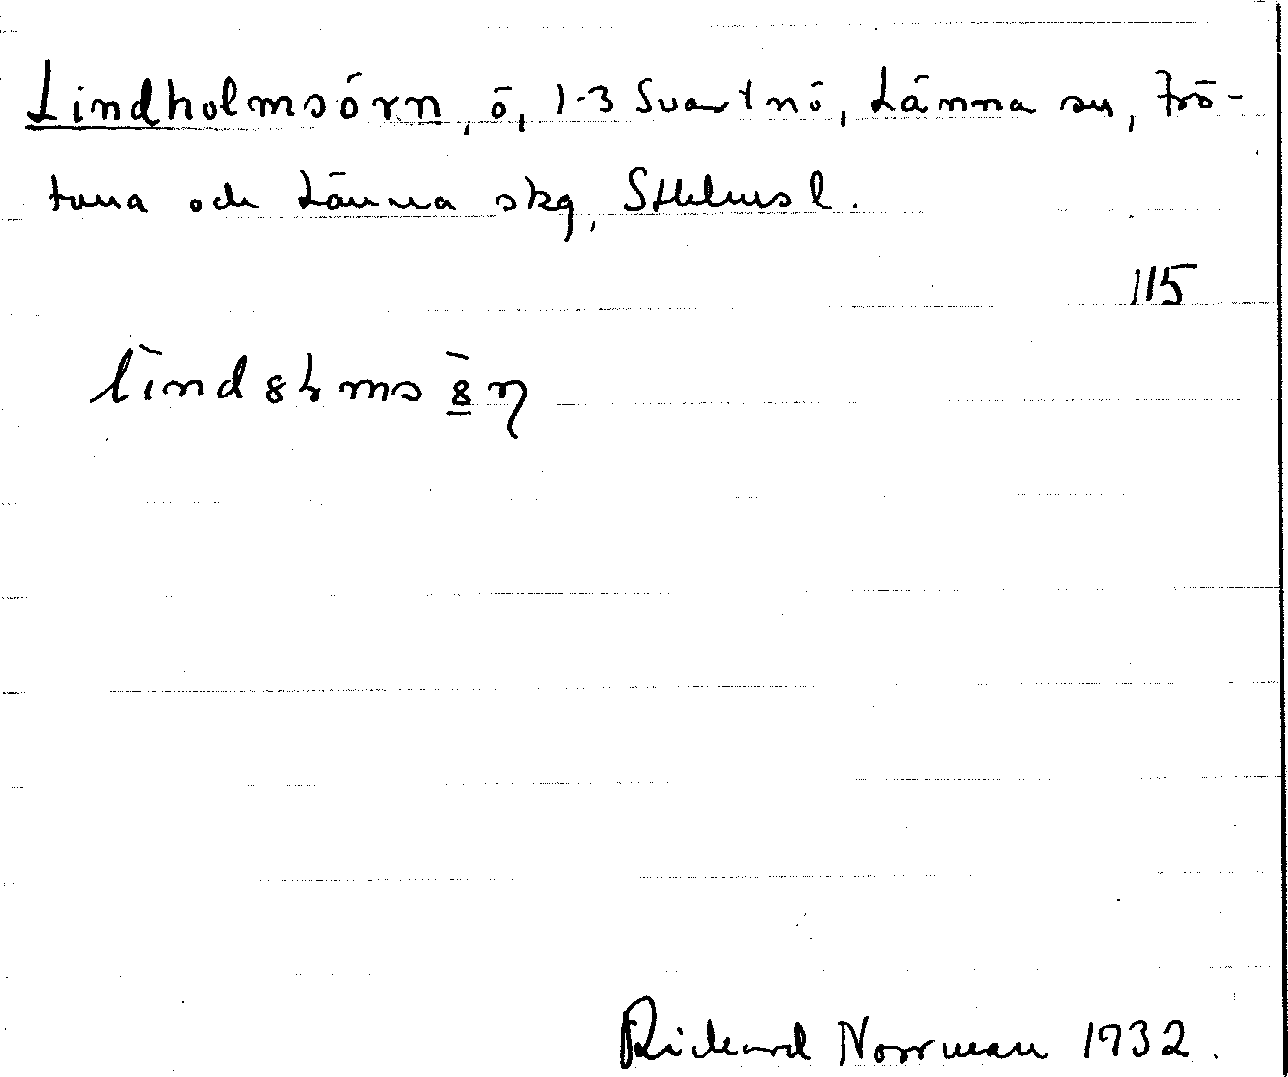 Lindholmsörn, ö, 1-3 Svartnö, Länna sn, Frö-
tuna och Länna skg, Sthlms l.
115
Rickard Norrman 1932.